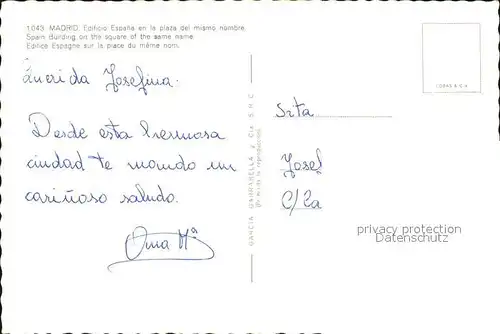 1043 MADRID. Edificio España en la plaza del mismo nombre.
Spain Building on the square of the same name.
Edifice Espagne sur la place du même nom.
Querida Josefina:
Desde esta hermosa
ciudad te mando un
cariñoso saludo.
Ana Mª
GARCIA GARRABELLA y Cia. S.R.C.
(Prohibida la reproducción)
Srta
Josef
C/ La
privacy protection
Datenschutz